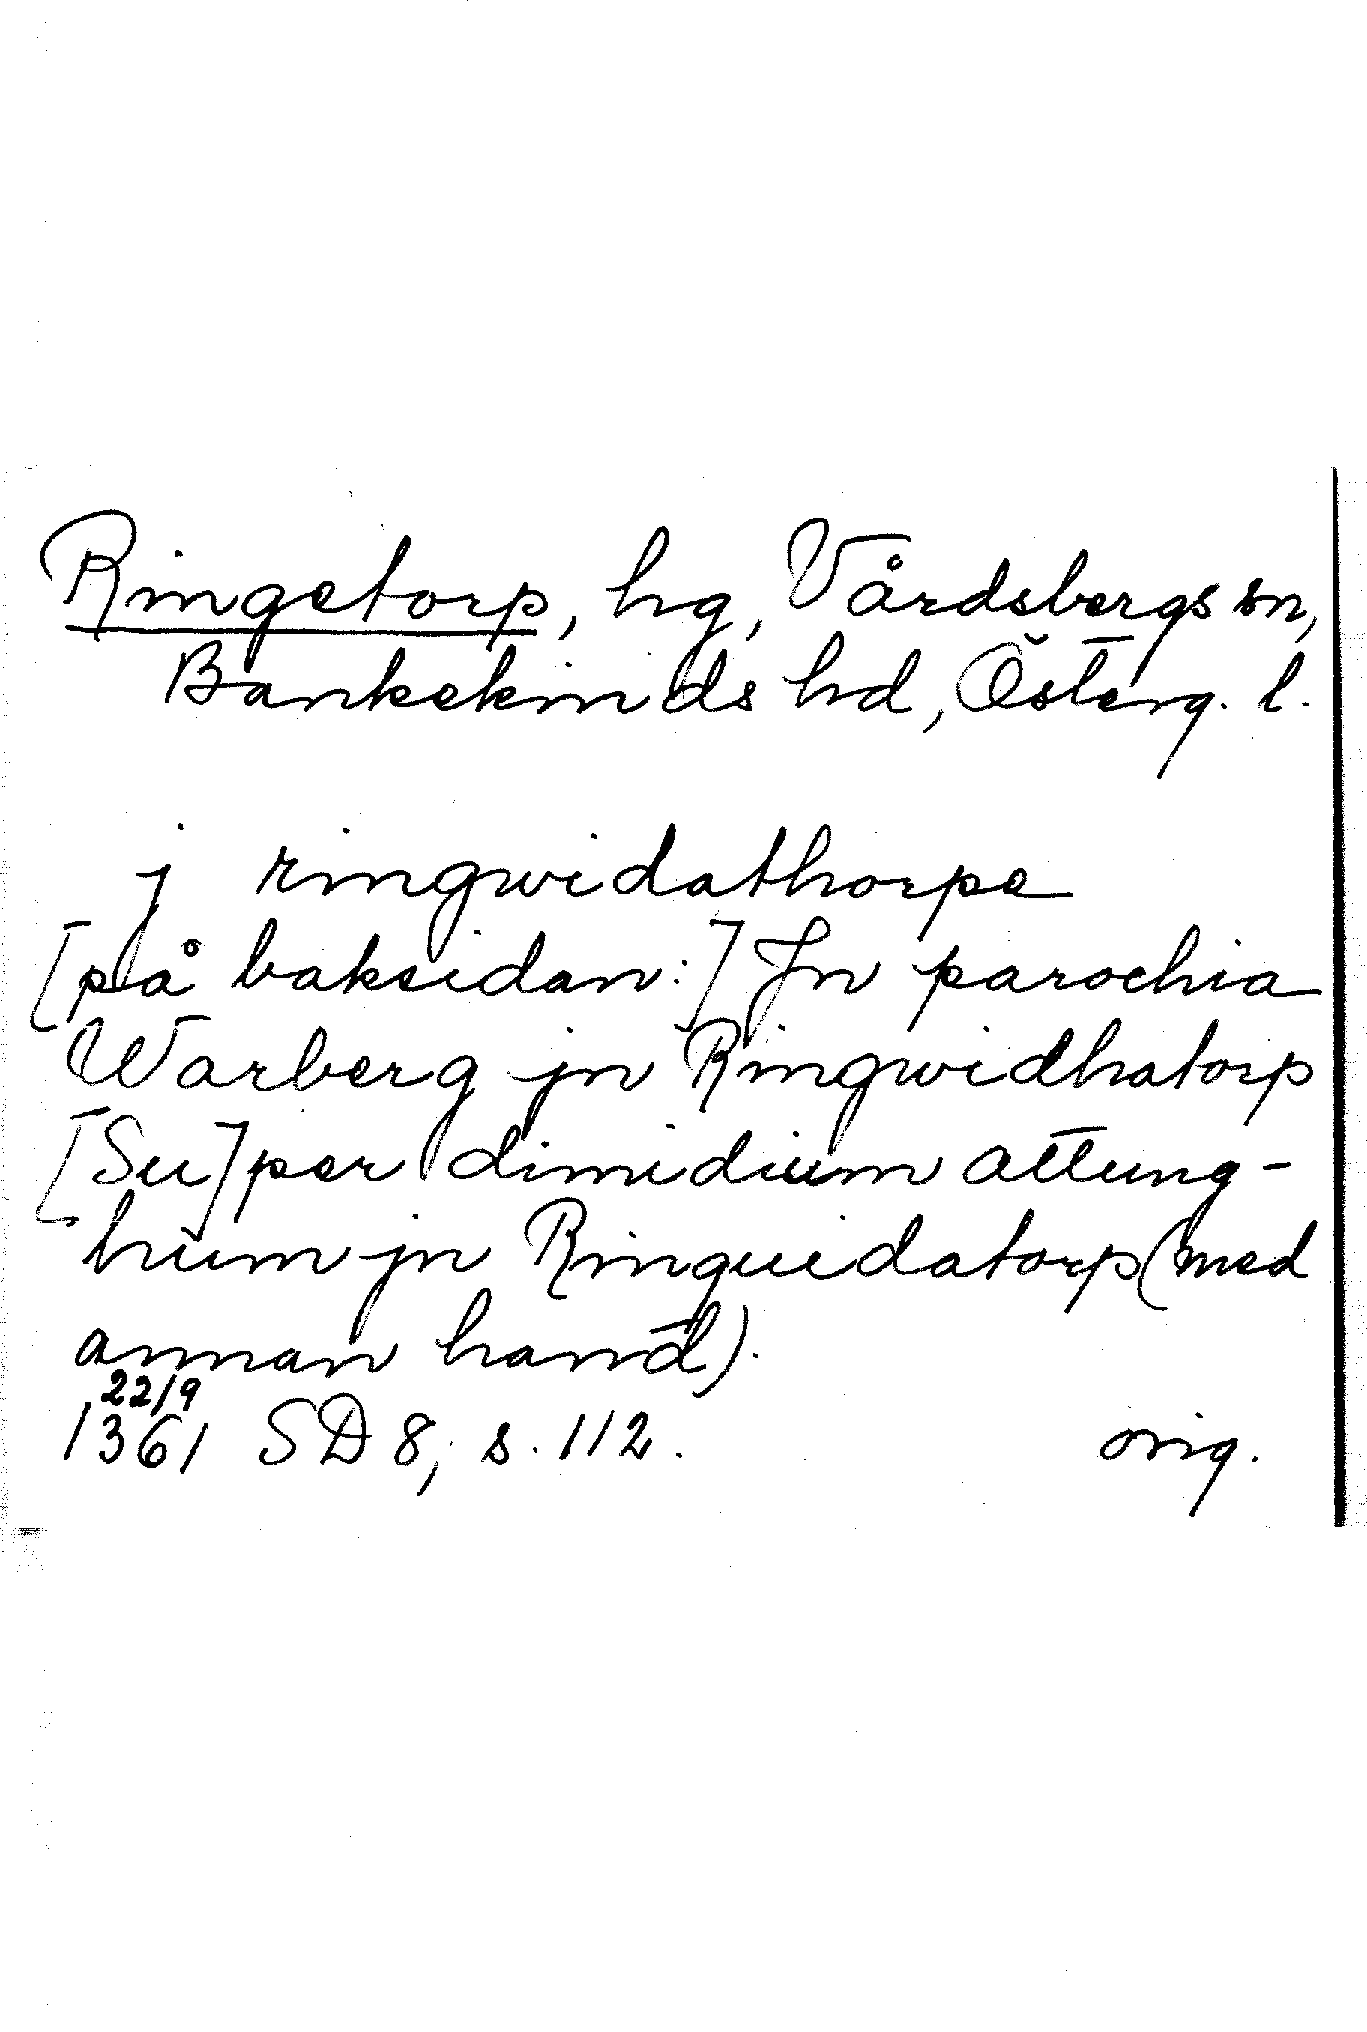 Ringetorp, hg, Vårdsbergs sn,
Bankekinds hd, Österg. l.
j ringwidathorpe
[på baksidan:] Jn parochia
Warberg jn Ringwidhatorp
[Su]per dimidium attung-
hum jn Ringuidatorp (med
annan hand).
22/9
1361 SD 8, s. 112. orig.